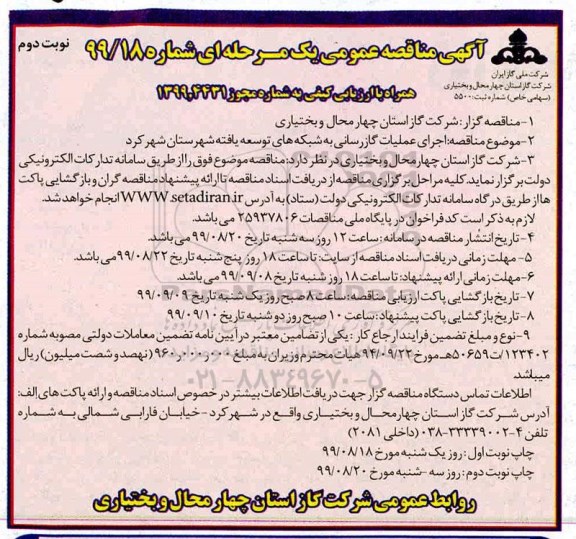 نوبت دوم
آگهی مناقصه عمومی یک مرحله ای شماره ۹۹/۱۸
شرکت ملی گاز ایران
شرکت گاز استان چهارمحال و بختیاری
(سهامی خاص) شماره ثبت: ۵۵۰۰
همراه با ارزیابی کیفی به شماره مجوز ۱۳۹۹,۴۴۳۱
۱-مناقصه گزار: شرکت گاز استان چهارمحال و بختیاری
۲-موضوع مناقصه: اجرای عملیات گازرسانی به شبکه های توسعه یافته شهرستان شهرکرد
۳-شرکت گاز استان چهارمحال و بختیاری در نظر دارد: مناقصه موضوع فوق را از طریق سامانه تدارکات الکترونیکی
دولت برگزار نماید. کلیه مراحل برگزاری مناقصه از دریافت اسناد مناقصه تا ارائه پیشنهاد مناقصه گران و بازگشایی پاکت
ها از طریق درگاه سامانه تدارکات الکترونیکی دولت (ستاد) به آدرس WWW.setadiran.ir انجام خواهد شد.
لازم به ذکر است کد فراخوان در پایگاه ملی مناقصات ۲۵۹۳۷۸۰۶ می باشد.
۴- تاریخ انتشار مناقصه در سامانه: ساعت ۱۲ روز سه شنبه تاریخ ۹۹/۰۸/۲۰ می باشد.
۵- مهلت زمانی دریافت اسناد مناقصه از سایت: تا ساعت ۱۸ روز پنج شنبه تاریخ ۹۹/۰۸/۲۲ می باشد.
۶-مهلت زمانی ارائه پیشنهاد: تا ساعت ۱۸ روز شنبه تاریخ ۹۹/۰۹/۰۸ می باشد.
۷- تاریخ بازگشایی پاکت ارزیابی مناقصه: ساعت ۸ صبح روز یک شنبه تاریخ ۹۹/۰۹/۰۹
۸- تاریخ بازگشایی پاکت پیشنهاد: ساعت ۱۰ صبح روز دوشنبه تاریخ ۹۹/۰۹/۱۰
۹-نوع و مبلغ تضمین فرایند ارجاع کار: یکی از تضامین معتبر در آیین نامه تضمین معاملات دولتی مصوبه شماره
۱۲۳۴۰۲/ت۵۰۶۵۹هـ مورخ ۹۴/۰۹/۲۲ هیات محترم وزیران به مبلغ ۹۶۰,۰۰۰,۰۰۰ (نهصد و شصت میلیون) ریال
میباشد
اطلاعات تماس دستگاه مناقصه گزار جهت دریافت اطلاعات بیشتر در خصوص اسناد مناقصه و ارائه پاکت های الف:
آدرس شرکت گاز استان چهارمحال و بختیاری واقع در شهرکرد - خیابان فارابی شمالی به شماره
تلفن ۴-۳۳۳۳۹۰۰۲-۰۳۸ (داخلی ۲۰۸۱)
چاپ نوبت اول: روز یک شنبه مورخ ۹۹/۰۸/۱۸
چاپ نوبت دوم: روز سه -شنبه مورخ ۹۹/۰۸/۲۰
روابط عمومی شرکت گاز استان چهارمحال و بختیاری
۰۲۱-۸۸۳۴۹۶۷۰-۵